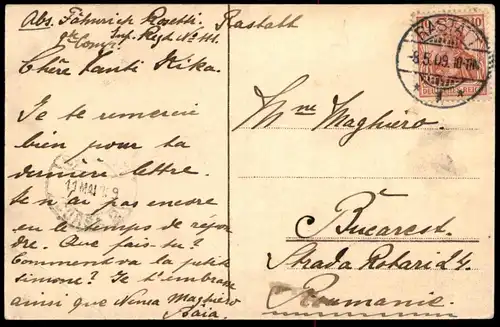 Abs. Fähnrich Rosetti. Rastatt
Inf. Regt. No 111.
Chère Tanti Kika.
Je te remercie
bien pour ta
dernière lettre.
Je n'ai pas encore
eu le temps de répon
dre. Que fais-tu?
Comment va la petite
simone? Je t'embrasse
ainsi que Nenea Maghiero
Mme Maghiero.
Bucarest.
Strada Rotari 24.
Roumanie.
RASTATT
-8.5.09.10-11
11 MAI
10
DEUTSCHES REICH